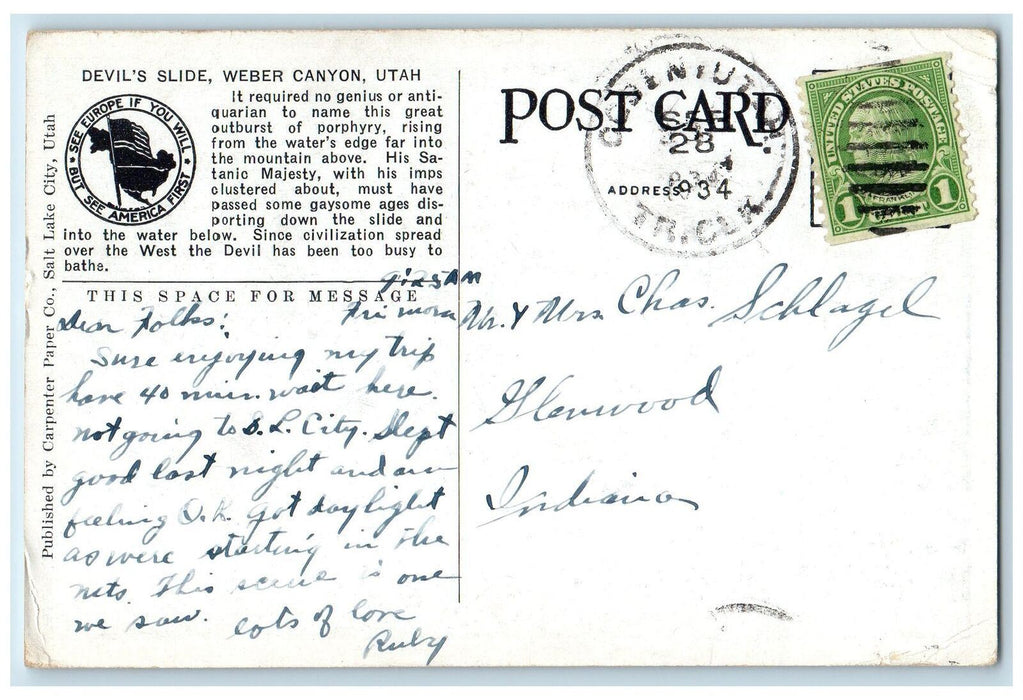 DEVIL'S SLIDE, WEBER CANYON, UTAH
SEE EUROPE IF YOU WILL
BUT SEE AMERICA FIRST
It required no genius or anti-
quarian to name this great
outburst of porphyry, rising
from the water's edge far into
the mountain above. His Sa-
tanic Majesty, with his imps
clustered about, must have
passed some gaysome ages dis-
porting down the slide and
into the water below. Since civilization spread
over the West the Devil has been too busy to
bathe.
Published by Carpenter Paper Co., Salt Lake City, Utah
THIS SPACE FOR MESSAGE
9:25 AM
Fri morn
Dear Folks:
Sure enjoying my trip
have 40 min. wait here.
not going to S. L. City. Slept
good last night and am
feeling O.K. got daylight
as were starting in the
mts. This scene is one
we saw. lots of love
Ruby
POST CARD
ADDRESS
SEP
28
1934
TR. CLK.
UNITED STATES POSTAGE
1 1
Mr. & Mrs Chas. Schlagel
Glenwood
Indiana